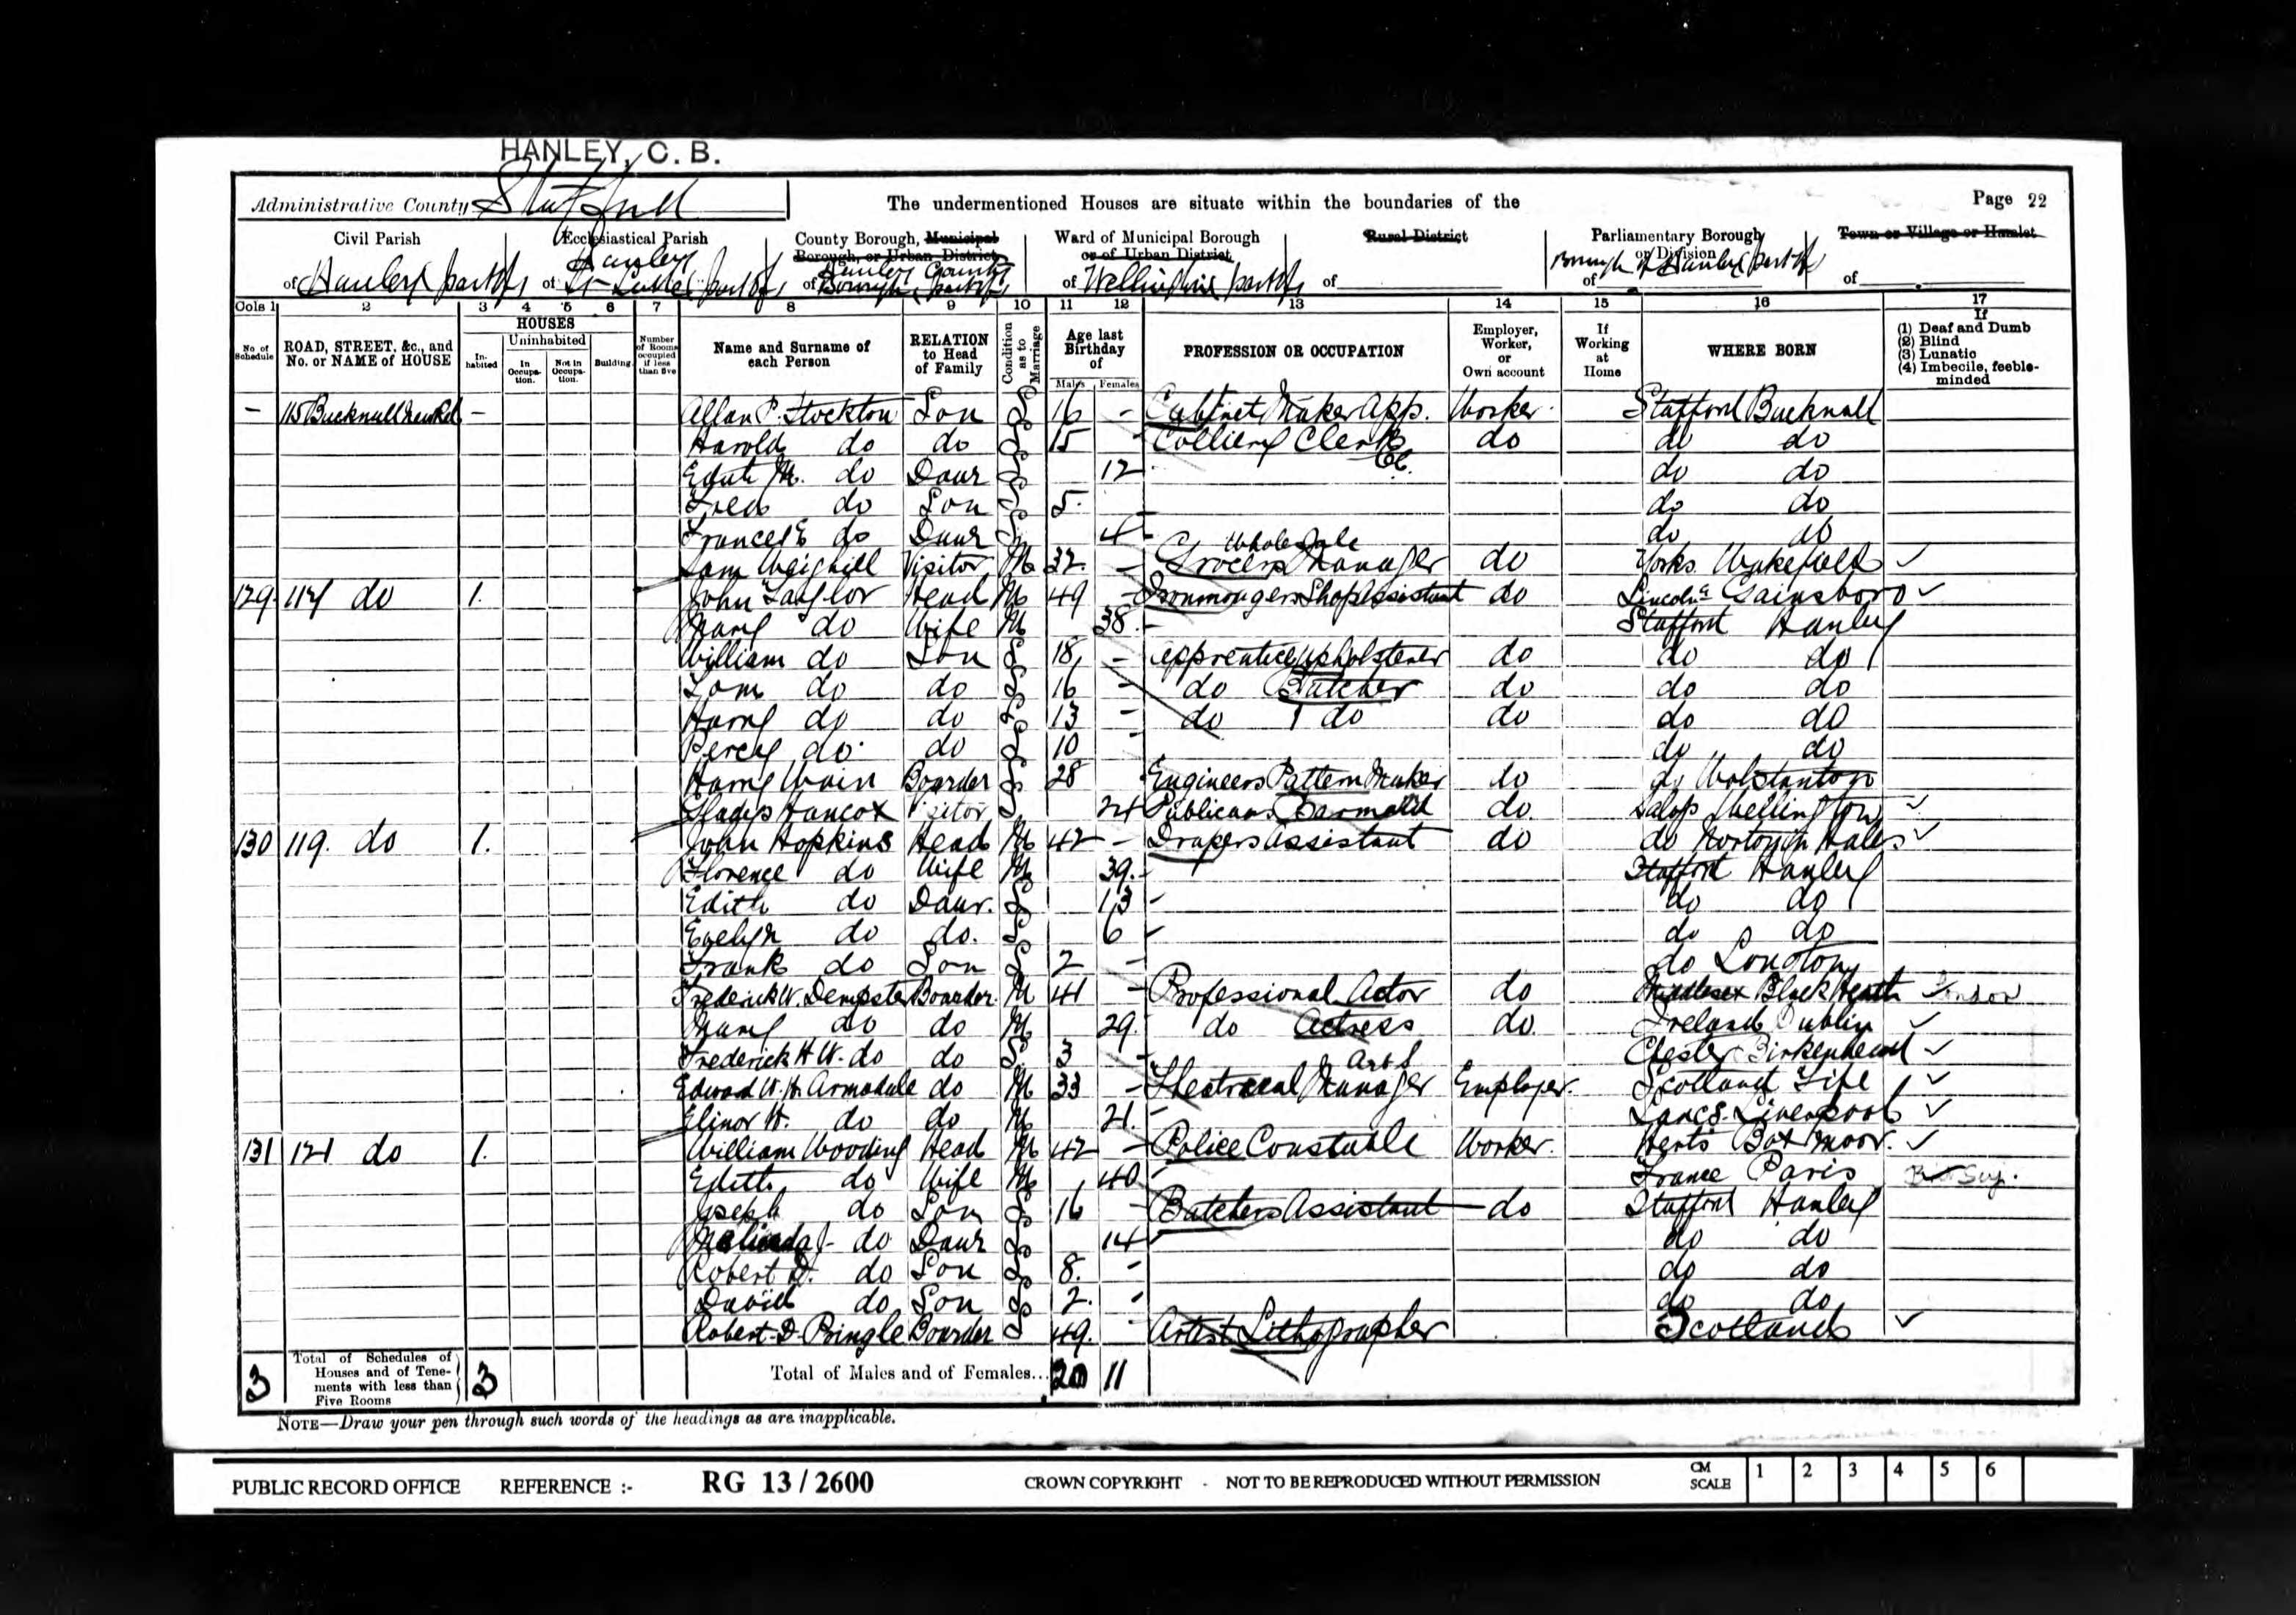 HANLEY, C. B.
Administrative County Stafford The undermentioned Houses are situate within the boundaries of the Page 22
Civil Parish Ecclesiastical Parish County Borough, Municipal Borough, or Urban District Ward of Municipal Borough or of Urban District Rural District Parliamentary Borough or Division Town or Village or Hamlet
of Hanley part of of Hanley St Lukes part of of Hanley County Borough part of of Wellington part of of of Borough of Hanley part of of
Cols 1 2 3 4 5 6 7 8 9 10 11 12 13 14 15 16 17
No. of Schedule ROAD, STREET, &c., and No. or NAME of HOUSE HOUSES In-habited Uninhabited In Occupa-tion. Not in Occupa-tion. Building Number of Rooms occupied if less than five Name and Surname of each Person RELATION to Head of Family Condition as to Marriage Age last Birthday of Males Females PROFESSION OR OCCUPATION Employer, Worker, or Own account If Working at Home WHERE BORN If (1) Deaf and Dumb (2) Blind (3) Lunatic (4) Imbecile, feeble-minded
– 115 Bucknall – Allan P. Stockton Son S 16 – Cabinet Maker App. Worker Stafford Bucknall
Harold do do S 15 Colliery Clerk do do do
Edith M. do Daur S 12 do do
Fred do Son S 5 do do
Frances E do Daur S 4 do do
Sam Weighill Visitor M 32 – Wholesale Grocers Manager do Yorks Wakefield
129 117 do 1. John Taylor Head M 49 – Ironmongers Shop Assistant do Lincoln Gainsboro
Mary do Wife M 38 – Stafford Hanley
William do Son S 18 – Apprentice Upholsterer do do do
Tom do do S 16 – do Butcher do do do
Harry do do S 13 – do do do do do
Percy do do S 10 – do do
Harry Wain Boarder S 28 Engineers Pattern Maker do do Wolstanton
Gladys Hancox Visitor S 24 Publicans Barmaid do Salop Wellington
130 119. do 1. John Hopkins Head M 42 – Drapers Assistant do do Norton in Hales
Florence do Wife M 39. – Stafford Hanley
Edith do Daur. S 13 – do do
Evelyn do do. S 6 do do
Frank do Son S 2 – do Longton
Frederick W. Dempster Boarder M 41 – Professional Actor do Middlesex Black Heath London
Mary do do M 29. do Actress do Ireland Dublin
Frederick H W. do do S 3 – Chester Birkenhead
Edward W. H. Armadale do M 33 – Theatrical Manager Employer. Scotland Fife
Elinor H. do do M 21. – Lancs. Liverpool
131 121 do 1. William Wooding Head M 42 – Police Constable Worker. Herts Box moor.
Edith do Wife M 40 – France Paris
Joseph do Son S 16 – Butchers Assistant do Stafford Hanley
do Daur S 14 do do
Robert D. do Son S 8. – do do
David do Son S 2. – do do
Robert D. Pringle Boarder S 49. – Artist Lithographer Scotland
3 Total of Schedules of Houses and of Tenements with less than Five Rooms 3 Total of Males and of Females... 20 11
NOTE—Draw your pen through such words of the headings as are inapplicable.
PUBLIC RECORD OFFICE REFERENCE :- RG 13 / 2600 CROWN COPYRIGHT - NOT TO BE REPRODUCED WITHOUT PERMISSION CM SCALE 1 2 3 4 5 6